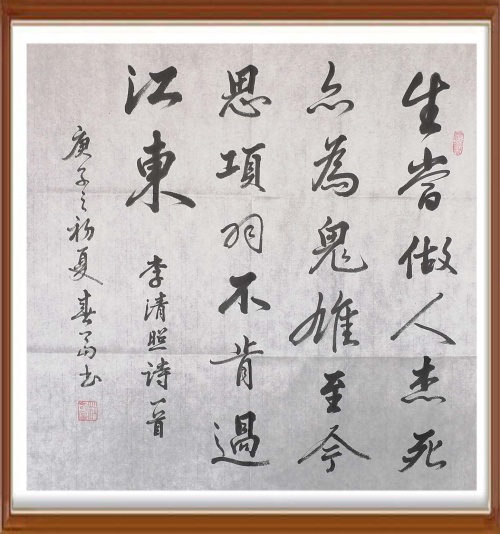 生當做人杰死
亦為鬼雄至今
思項羽不肯過
江東
李清照詩一首
庚子之初夏春书